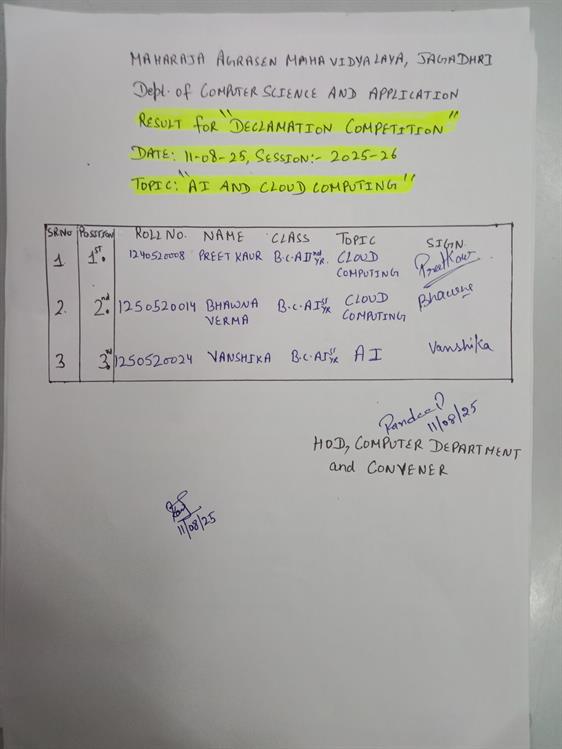 MAHARAJA AGRASEN MAHAVIDYALAYA, JAGADHRI
Dept. of COMPUTER SCIENCE AND APPLICATION
RESULT for "DECLAMATION COMPETITION"
DATE: 11-08-25, SESSION:- 2025-26
TOPIC: "AI AND CLOUD COMPUTING"
SR.NO POSITION ROLL NO. NAME CLASS TOPIC SIGN.
1 1st. 1240520008 PREET KAUR B.C.A IInd YR. CLOUD COMPUTING Preet Kaur
2. 2nd. 1250520014 BHAWNA VERMA B.C.A Ist YR CLOUD COMPUTING Bhawna
3 3rd. 1250520024 VANSHIKA B.C.A Ist YR AI Vanshika
11/08/25
HOD, COMPUTER DEPARTMENT
and CONVENER
11/08/25